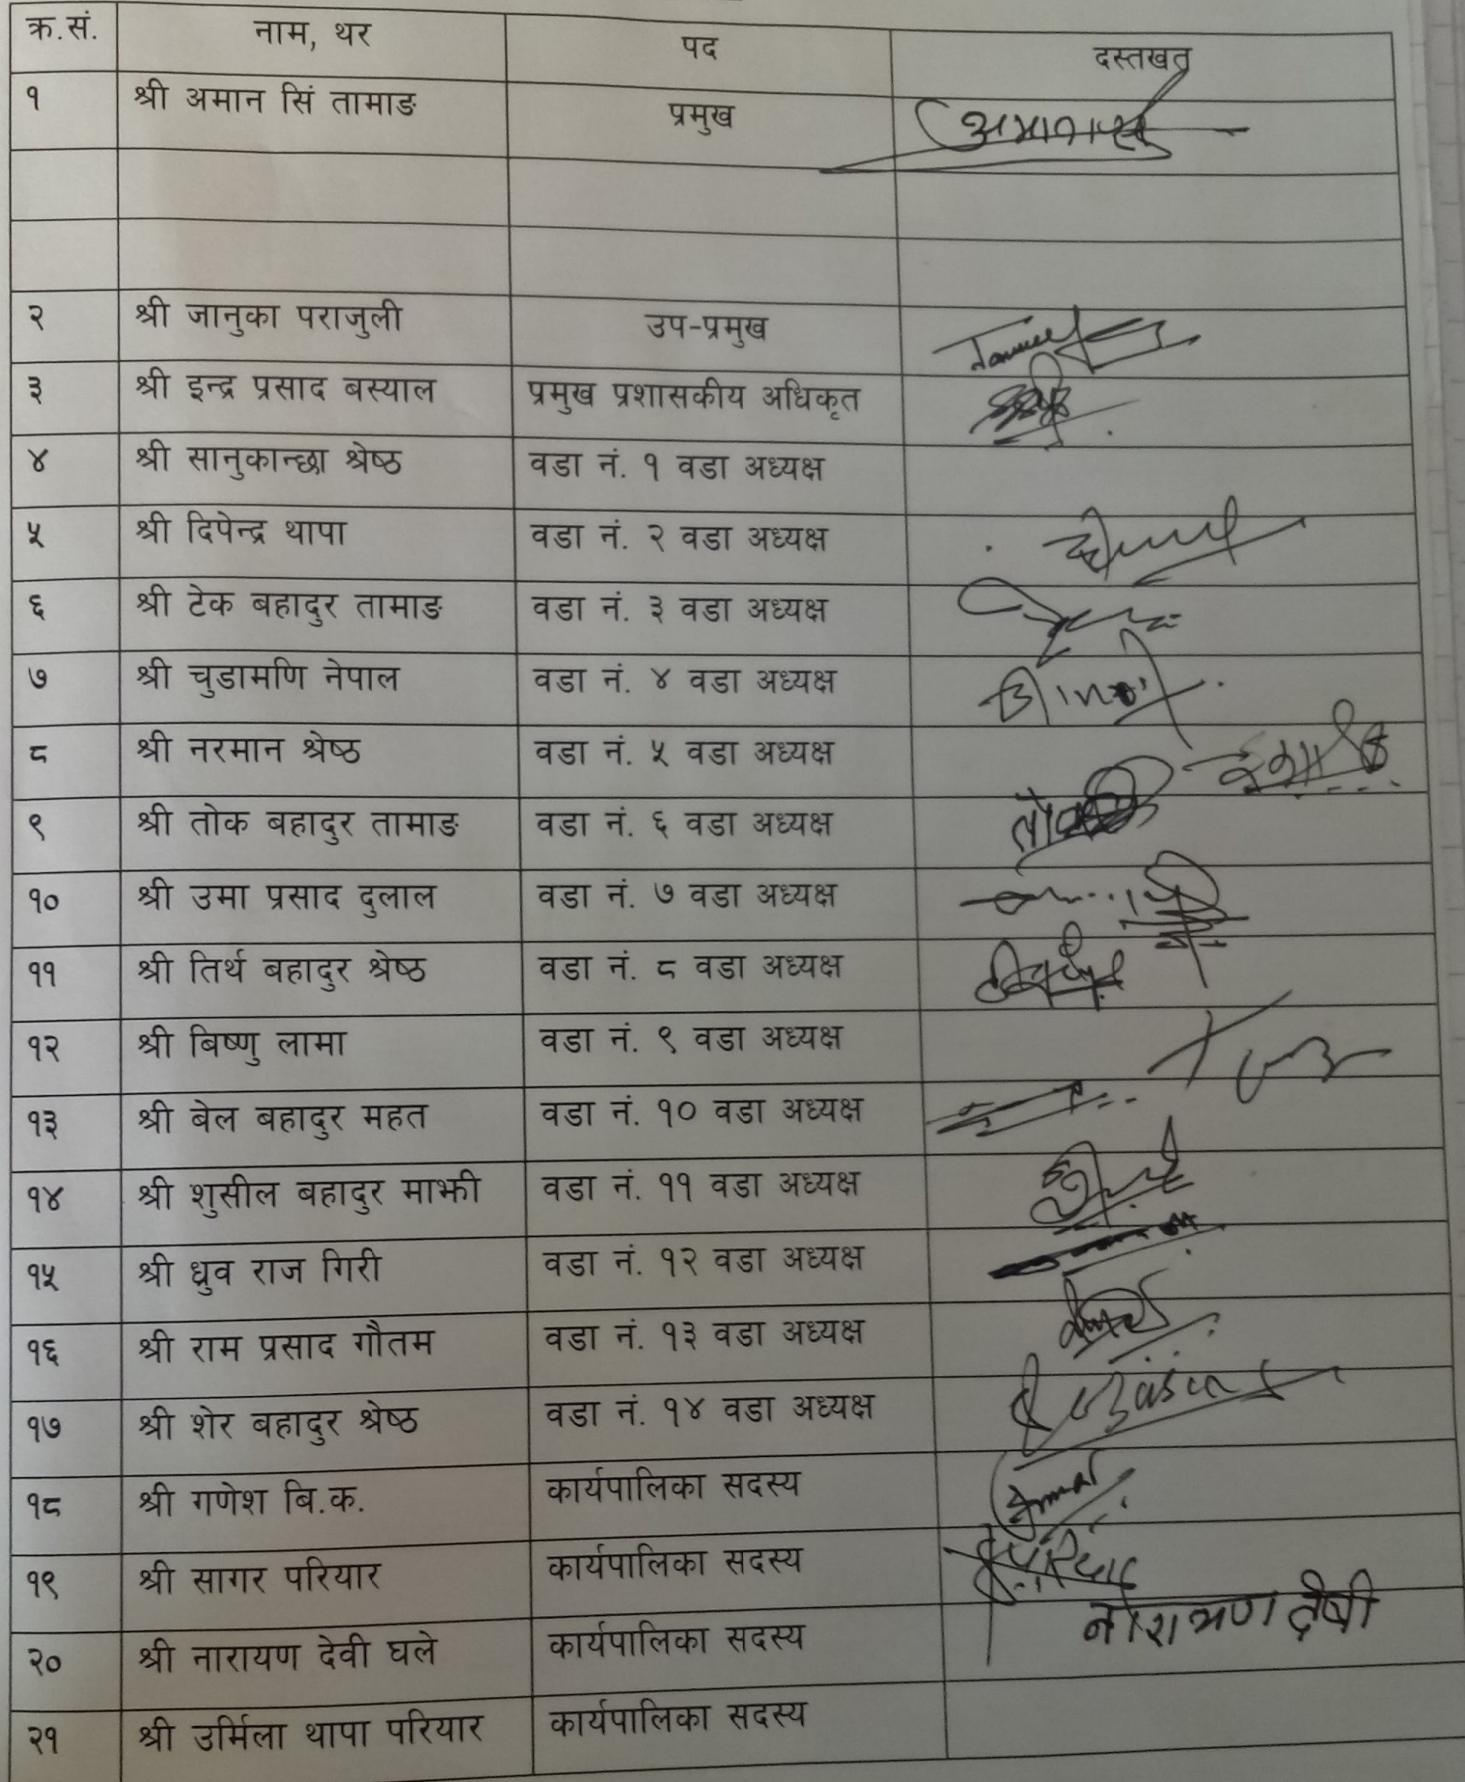 क्र.सं. नाम, थर पद दस्तखत
१ श्री अमान सिं तामाङ प्रमुख
२ श्री जानुका पराजुली उप-प्रमुख
३ श्री इन्द्र प्रसाद बस्याल प्रमुख प्रशासकीय अधिकृत
४ श्री सानुकान्छा श्रेष्ठ वडा नं. १ वडा अध्यक्ष
५ श्री दिपेन्द्र थापा वडा नं. २ वडा अध्यक्ष
६ श्री टेक बहादुर तामाङ वडा नं. ३ वडा अध्यक्ष
७ श्री चुडामणि नेपाल वडा नं. ४ वडा अध्यक्ष
८ श्री नरमान श्रेष्ठ वडा नं. ५ वडा अध्यक्ष
९ श्री तोक बहादुर तामाङ वडा नं. ६ वडा अध्यक्ष
१० श्री उमा प्रसाद दुलाल वडा नं. ७ वडा अध्यक्ष
११ श्री तिर्थ बहादुर श्रेष्ठ वडा नं. ८ वडा अध्यक्ष
१२ श्री बिष्णु लामा वडा नं. ९ वडा अध्यक्ष
१३ श्री बेल बहादुर महत वडा नं. १० वडा अध्यक्ष
१४ श्री शुसील बहादुर माझी वडा नं. ११ वडा अध्यक्ष
१५ श्री ध्रुव राज गिरी वडा नं. १२ वडा अध्यक्ष
१६ श्री राम प्रसाद गौतम वडा नं. १३ वडा अध्यक्ष
१७ श्री शेर बहादुर श्रेष्ठ वडा नं. १४ वडा अध्यक्ष
१८ श्री गणेश बि.क. कार्यपालिका सदस्य
१९ श्री सागर परियार कार्यपालिका सदस्य
२० श्री नारायण देवी घले कार्यपालिका सदस्य नारायण देवी
२१ श्री उर्मिला थापा परियार कार्यपालिका सदस्य